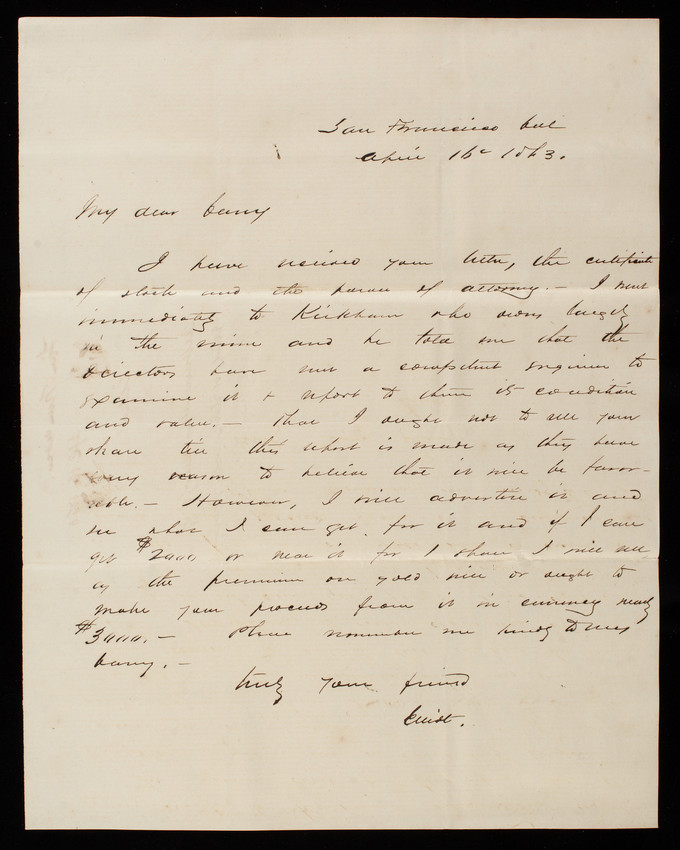 San Francisco Cal
April 16th 1863.
My dear Casey
I have received your letter, the certificate
of stock and the power of attorney. - I went
immediately to Kirkham who owns largely
in the mine and he told me that the
Directors have sent a competent Engineer to
examine it & report to them its condition
and value. - That I ought not to sell your
share till this report is made as they have
every reason to believe that it will be favor-
able. - However, I will advertise it and
see what I can get for it and if I can
get $2000 or near it for 1 share I will sell,
as the premium on gold will or ought to
make your proceeds from it in currency nearly
$3000. - Please remember me kindly to Mrs
Casey. -
truly your friend